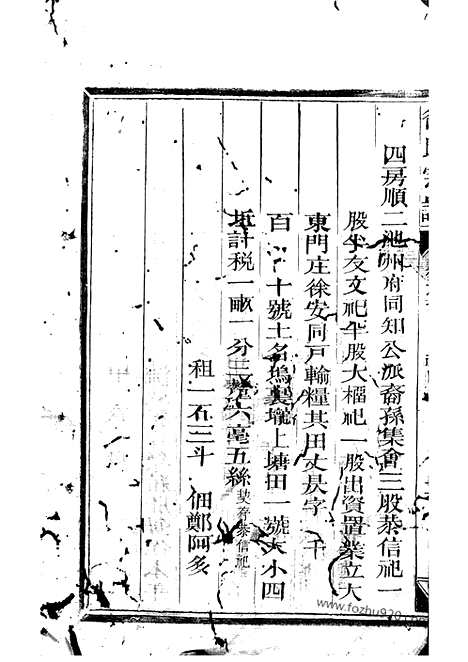 徐氏宗譜
四房順二池州府同知公派裔孫集會三股恭信祀一
股半友文祀半股大櫺祀一股出資置業立大
東門庄徐安同戶輸糧其田丈長字 千
百 十號土名塢裏壠上塘田一號大小四
坵計税一畝一分三厘六毫五絲
恭信祀
租一石三斗 佃鄭阿多
www.fozhu920.com